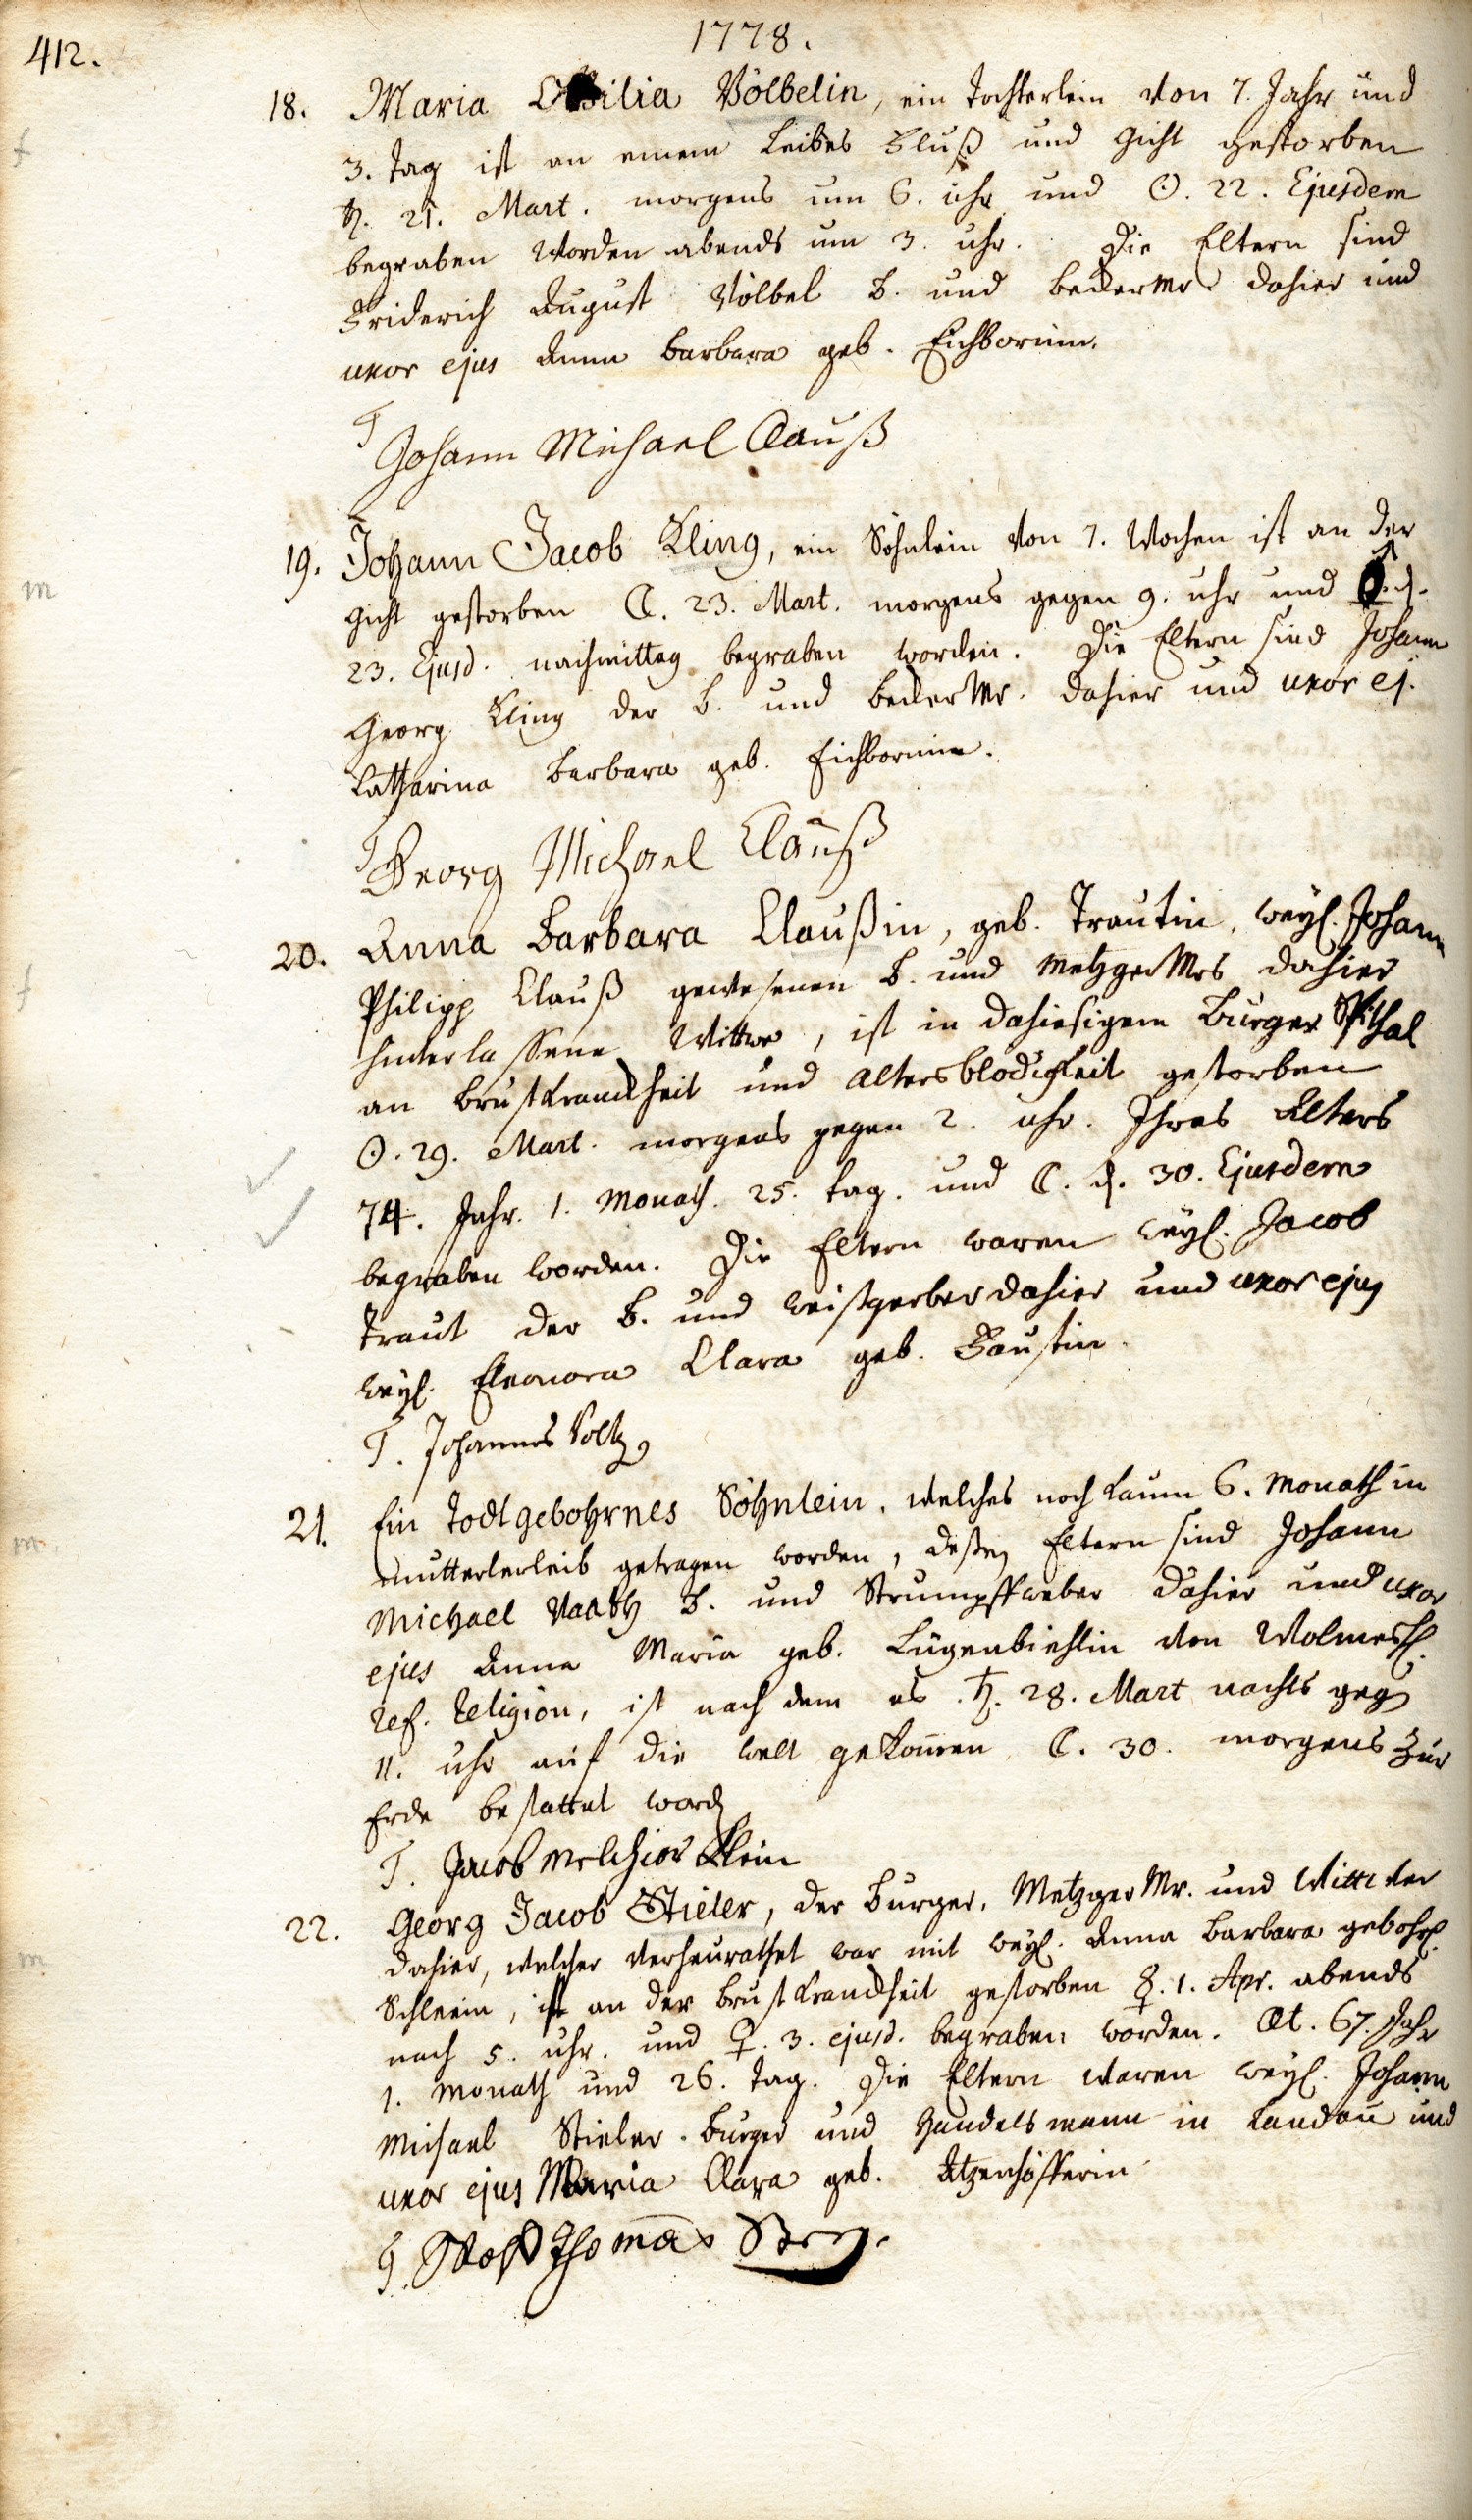 412.
1778.
18. Maria Ottilia Völbelin, ein Töchterlein von 7. Jahr und
3. Tag ist an einem Leibes Fluß und Gicht gestorben
♄. 21. Mart. morgens um 6. uhr und ☉. 22. Ejusdem
begraben worden abends um 3. uhr. Die Eltern sind
Friderich August Völbel B. und BeckerMr dahier und
uxor ejus Anna Barbara geb. Eichbornin.
T Johann Michael Clauß
19. Johann Jacob Kling, ein Söhnlein von 7. Wochen ist an der
Gicht gestorben ☾. 23. Mart. morgens gegen 9. uhr und
23. Ejusd. nachmittag begraben worden. Die Eltern sind Johann
Georg Kling der B. und BeckerMr. dahier und uxor ej.
Catharina Barbara geb. Eichbornin.
T Georg Michael Clauß
20. Anna Barbara Claußin, geb. Trautin, weyl. Johann
Philipp Clauß gewesenen B. und MetzgerMrs dahier
hinterlassene Wittwe, ist in dahiesigem Burger Spithal
an Brustkranckheit und Altersblödigkeit gestorben
☉. 29. Mart. morgens gegen 2. uhr. Ihres Alters
74. Jahr. 1. Monath. 25. tag. und ☾. d. 30. Ejusdem
begraben worden. Die Eltern waren weyl. Jacob
Traut der B. und Weißgerber dahier und uxor ejus
weyl. Eleonora Clara geb. Faustin.
T. Johannes Voltz
21. Ein Todtgebohrnes Söhnlein, welches noch kaum 6. Monath in
mutterleib getragen worden, deßen Eltern sind Johann
Michael B. und Strumpffweber dahier und uxor
ejus Anna Maria geb. Lügenbiehlin von
ref. Religion, ist nach dem es ♄. 28. Mart nachts gegen
11. uhr auf die welt gekommen ☾. 30. morgens zur
Erde bestattet worden
T. Jacob Melchior Klein
22. Georg Jacob Stieler, der Burger, MetzgerMr. und Wittwer
dahier, welcher verheurathet war mit weyl. Anna Barbara gebohr.
Schleein, ist an der Brustkranckheit gestorben ☿. 1. Apr. abends
nach 5. uhr. und ♀. 3. ejusd. begraben worden. Æt. 67. Jahr
1. Monath und 26. Tag. Die Eltern waren weyl. Johann
Michael Stieler. Burger und Handelsmann in Landau und
uxor ejus Maria Clara geb. Atzenhöfferin
T. Thomas
f
m
f
m
m